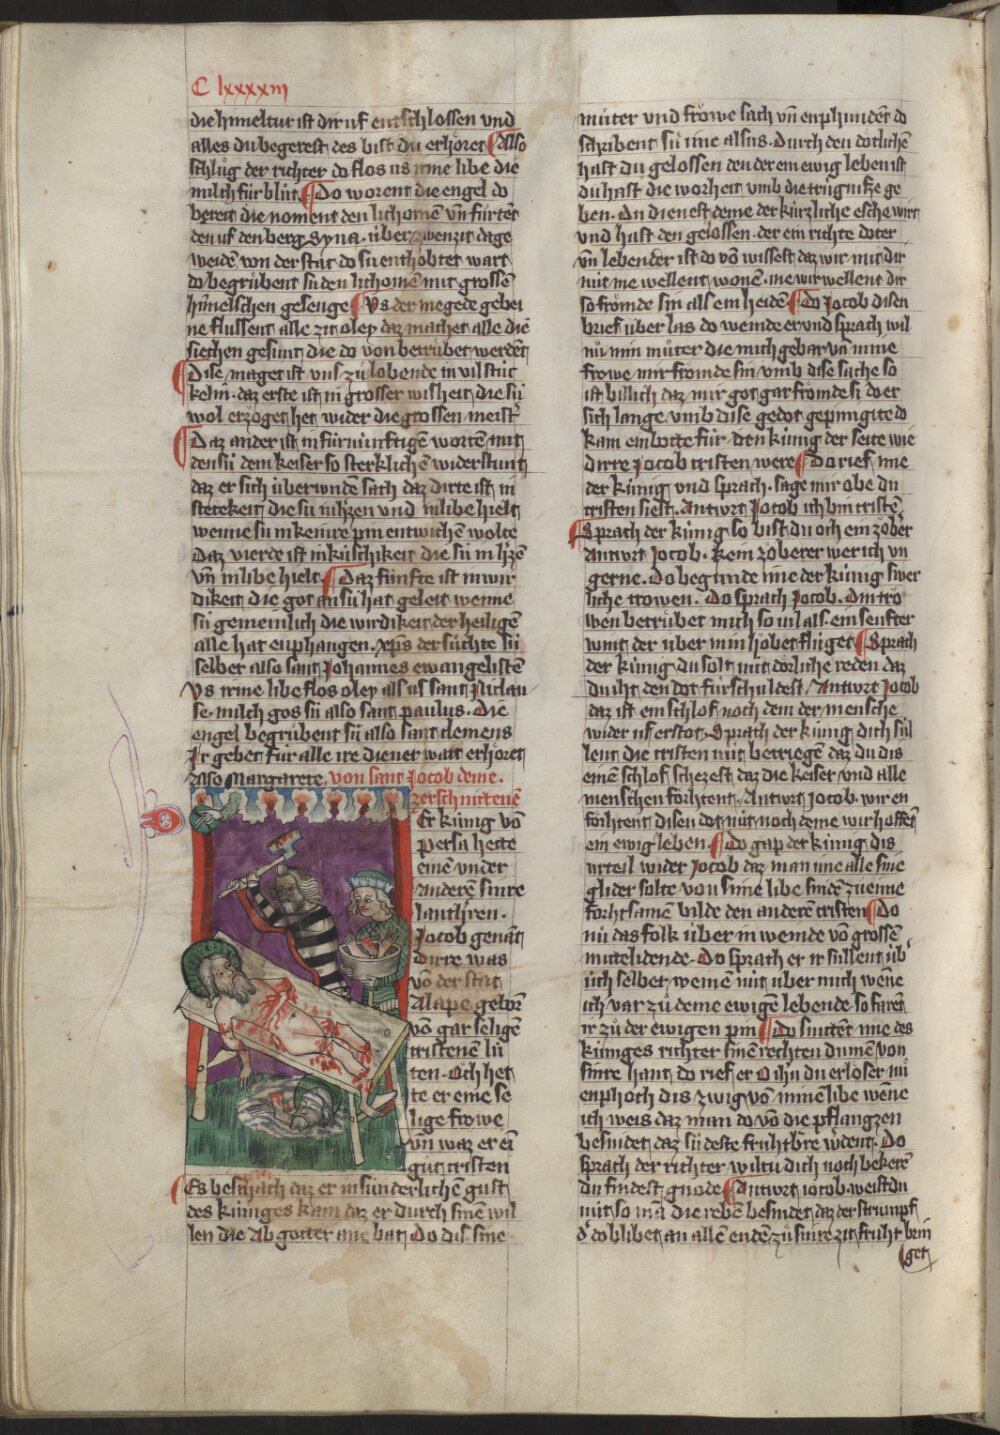 C lxxxxiij
die himeltur ist dir uf entschlossen und
alles du begerest des bist du erhöret Also
schlůg der richter do flos us irme libe die
milch für blůt Do worent die engel do
bereit die noment den lichomē vn̄ fůrtēt
den uf den berg Syna · über zwenzit dage
weidē von der stat do sú enthobtet wart
do begrůbent sú den lichomē mit grossē
himelschen gesenge Vs der megede gebei
ne flussent alle zit oley daz machet alle die
siechen gesunt die do von betrúbet werdēt
Dise maget ist uns zů lobende in vil stúc
keln · daz erste ist in grosser wisheit die sú
wol erzöget het wider die grossen meist̄
Daz ander ist in fúrnúnftigē worten mit
den sú dem keiser so sterklichē widerstunt
daz er sich überwndē sach daz dirte ist in
stetekeit die sú in h̄zen und in libe hielt
wenne sú in keinre pin entwichē wolte
Daz vierde ist in kúschikeit die sú in h̄zē
vn̄ in libe hielt Daz fúnfte ist in wir
dikeit die got an sú hat geleit wenne
sú gemeinlich die wirdikeit der heiligē
alle hat enphangen · xp̄s der sůchte sú
selber also sant Johannes ewangelistē
Vs irme libe flos oley als us sant Niclau
se · milch gos sú also sant paulus · Die
engel begrůbent sú also sant clemens
Ir gebet für alle ire diener wart erhöret
Also Margarete · von sant Jocob deme ·
zerschnittenē
Er kúnig vō
persia hette
einē under
anderē sinre
lanth̄ren ·
Jocob genāt
dirre was
vō der stat
Alape gebor̄
vō gar seligē
cristenē lú
ten · Och het
te er eine se
lige frowe
vn̄ waz er eī
gůt cristen
Es beschach daz er in sunderlichē gust
des kúniges kam daz er durch sinē wil
len die abgötter ane bat Do dis sine
můter und frowe sach vn̄ enphundēt do
schribent sú ime alsus · durch den dotlichē
hast du gelossen den der ein ewig leben ist
du hast die worheit umb die trúgnisse ge
ben · du dienest deme der kúrzliche esche wirt
und hast den gelossen · der ein richte doter
vn̄ lebender ist do vō wissest daz wir mit dir
nút me wellent wonē · me wir wellent dir
so frömde sin als ein heidē Do Jocob disen
brief über las do weinde er und sprach wil
nú min můter die mich gebar vn̄ mine
frowe mir frömde sin umb dise sache so
ist billich daz mir got gar frömde si do er
sich lange umb dise gedot gepinigite do
kam ein botte für den kúnig der seite wie
dirre Jocob cristen were Do rief ime
der kúnig und sprach · sage mir obe du
cristen siest · Antwrt Jocob ich bin cristē
Sprach der kúnig so bist du och ein zöber̄
Antwrt Jocob · kein zöberer wer ich vn
gerne · Do begunde ime der kúnig swer
liche trowen · Do sprach Jocob · Din tro
wen betrúbet mich so vil als ein senfter
wint der über min höbet flúget Sprach
der kúnig du solt nút dörliche reden daz
du iht den dot fúrschuldest / Antwrt Jocob
daz ist ein schlof noch dem der mensche
wider uf erstot · Sprach der kúnig dich súl
lent die cristen nút betriegē daz du dis
einē schlof schezest daz die keiser und alle
menschen förhtent · Antwrt Jocob · wir en
förhtent disen dot nút noch deme wir hoffēt
ein ewig leben · Do gap der kúnig dis
urteil wider Jocob daz man ime alle sine
glider solte von sime libe sniden zu eime
forhtsamē bilde den anderē cristen Do
nú das folk über in weinde vō grossē
mittelidende · Do sprach er ir súllent úb̄
úch selber weinē nút über mich wēne
ich var zů deme ewigē lebende · so farēt
ir zů der ewigen pin Do snittēt ime des
kúniges richter sinē rechten dumē von
sinre hant · do rief er O ih̄u du erlöser nú
enphoch dis zwig vō minē libe wēne
ich weis daz man do vō die pflantzen
besnidet daz sú deste fruhtb̄re w̄dent · Do
sprach der richter wiltu dich noch bekerē
du findest gnode Antwrt iocob weist du
nút so mā die rebē besnidet daz der strumpf
d̄ do blibet an allē endē zů sinre zit fruht brin
get